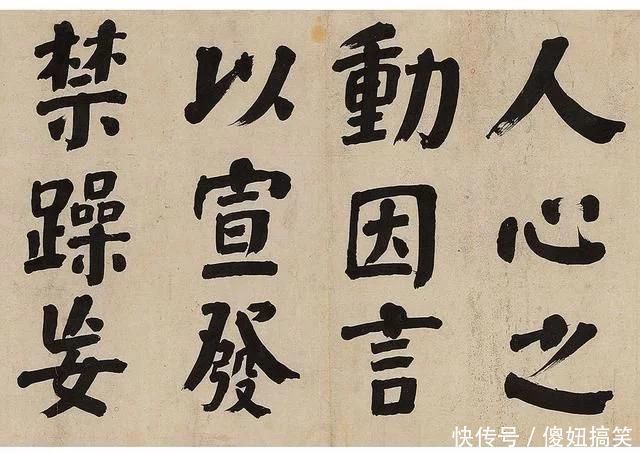 人心之
動因言
以宣發
禁躁妄
快传号/傻妞搞笑